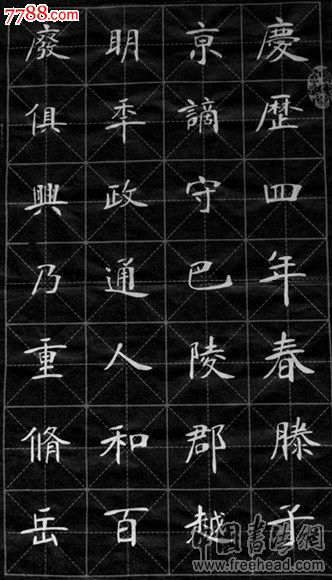 7788.com
慶歷四年春滕子
京謫守巴陵郡越
明秊政通人和百
廢俱興乃重脩岳
中国书法网
www.freehead.com